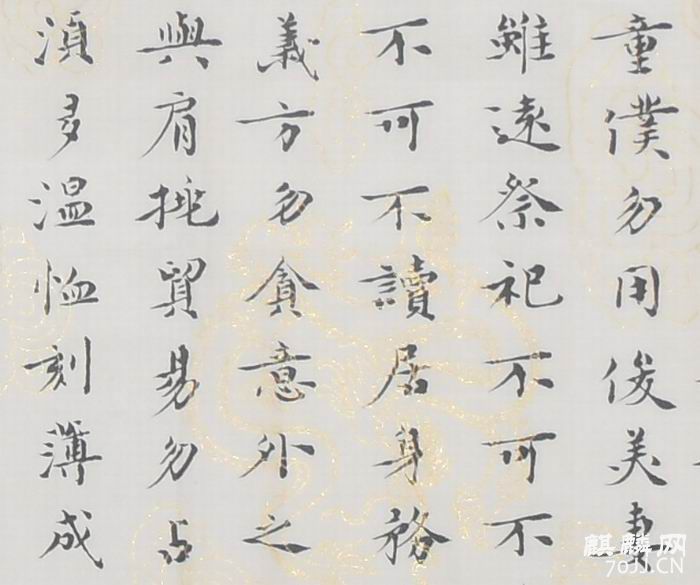 童僕勿用俊美妻
雖遠祭祀不可不
不可不讀居身務
義方勿貪意外之
與肩挑貿易勿占
湏多温恤刻薄成
麒麟网
70JJ.CN